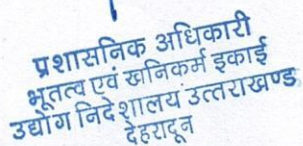 प्रशासनिक अधिकारी
भूतत्व एवं खनिकर्म इकाई
उद्योग निदेशालय उत्तराखण्ड
देहरादून